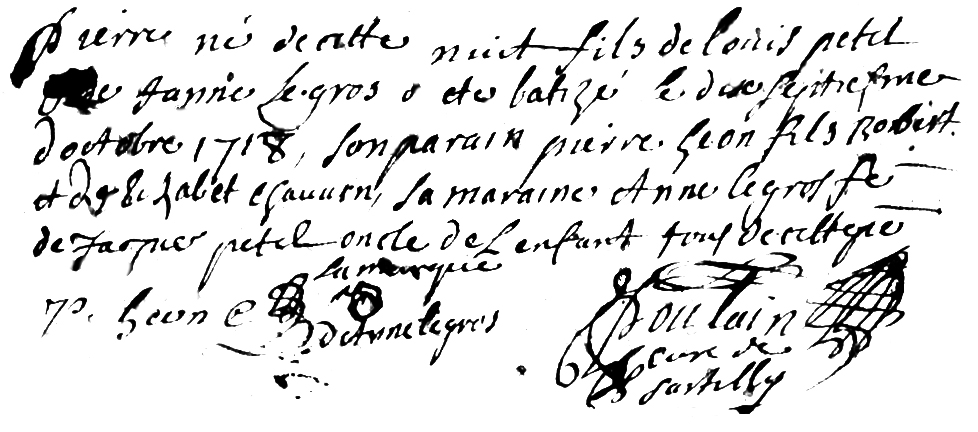 Pierre né de cette nuit fils de louis petel
de Janne le gros a ete batizé le dix septiesme
doctobre 1718, son parain pierre heon fils Robert
et d Elizabet chauuen, la maraine Anne le gros fe
de Jacques petel oncle de L enfant tous de cette pse
la marque
P. heon
de Anne le gros
Poulain
cure de
Sartilly